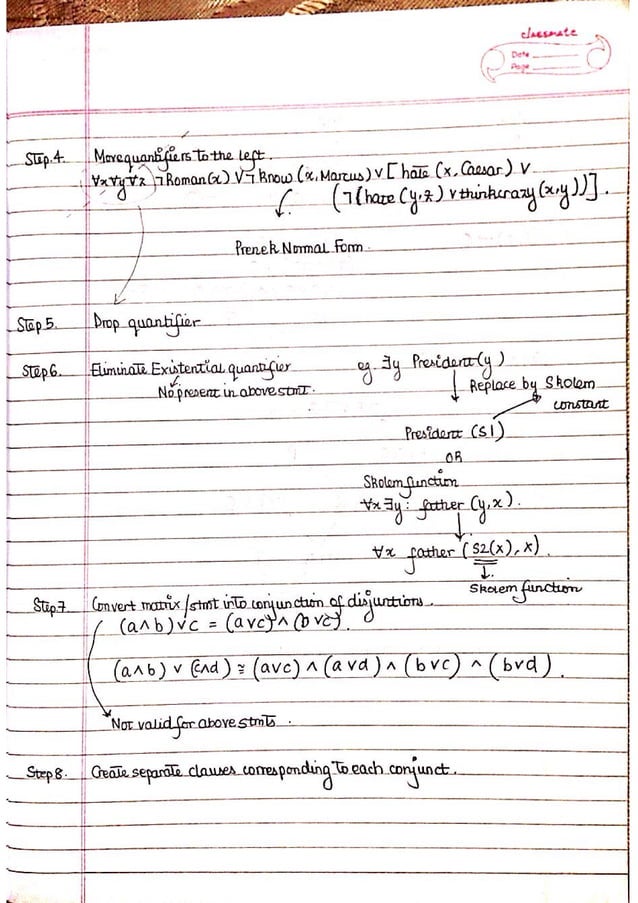 classmate
Date
Page
Step.4 Move quantifiers to the left.
∀x∀y∀z) ¬Roman(x) ∨ ¬know (x, Marcus) ∨ [hate (x, Caesar) ∨
(¬(hate (y,z) ∨ thinkcrazy (x,y))].
Prenek Normal Form.
Step 5. Drop quantifier
Step 6. Eliminate Existential quantifier eg. ∃y President (y)
No present in above stmt.
Replace by Skolem
constant
President (S1)
OR
Skolem function
∀x ∃y : father (y,x).
∀x father (S2(x), x).
Skolem function
Step 7 Convert matrix/stmt into conjunction of disjuntions.
(a∧b)∨c = (a∨c) ∧ (b∨c).
(a∧b) ∨ (c∧d) ≅ (a∨c) ∧ (a∨d) ∧ (b∨c) ∧ (b∨d).
Not valid for above stmts.
Step 8. Create separate clauses corresponding to each conjunct.